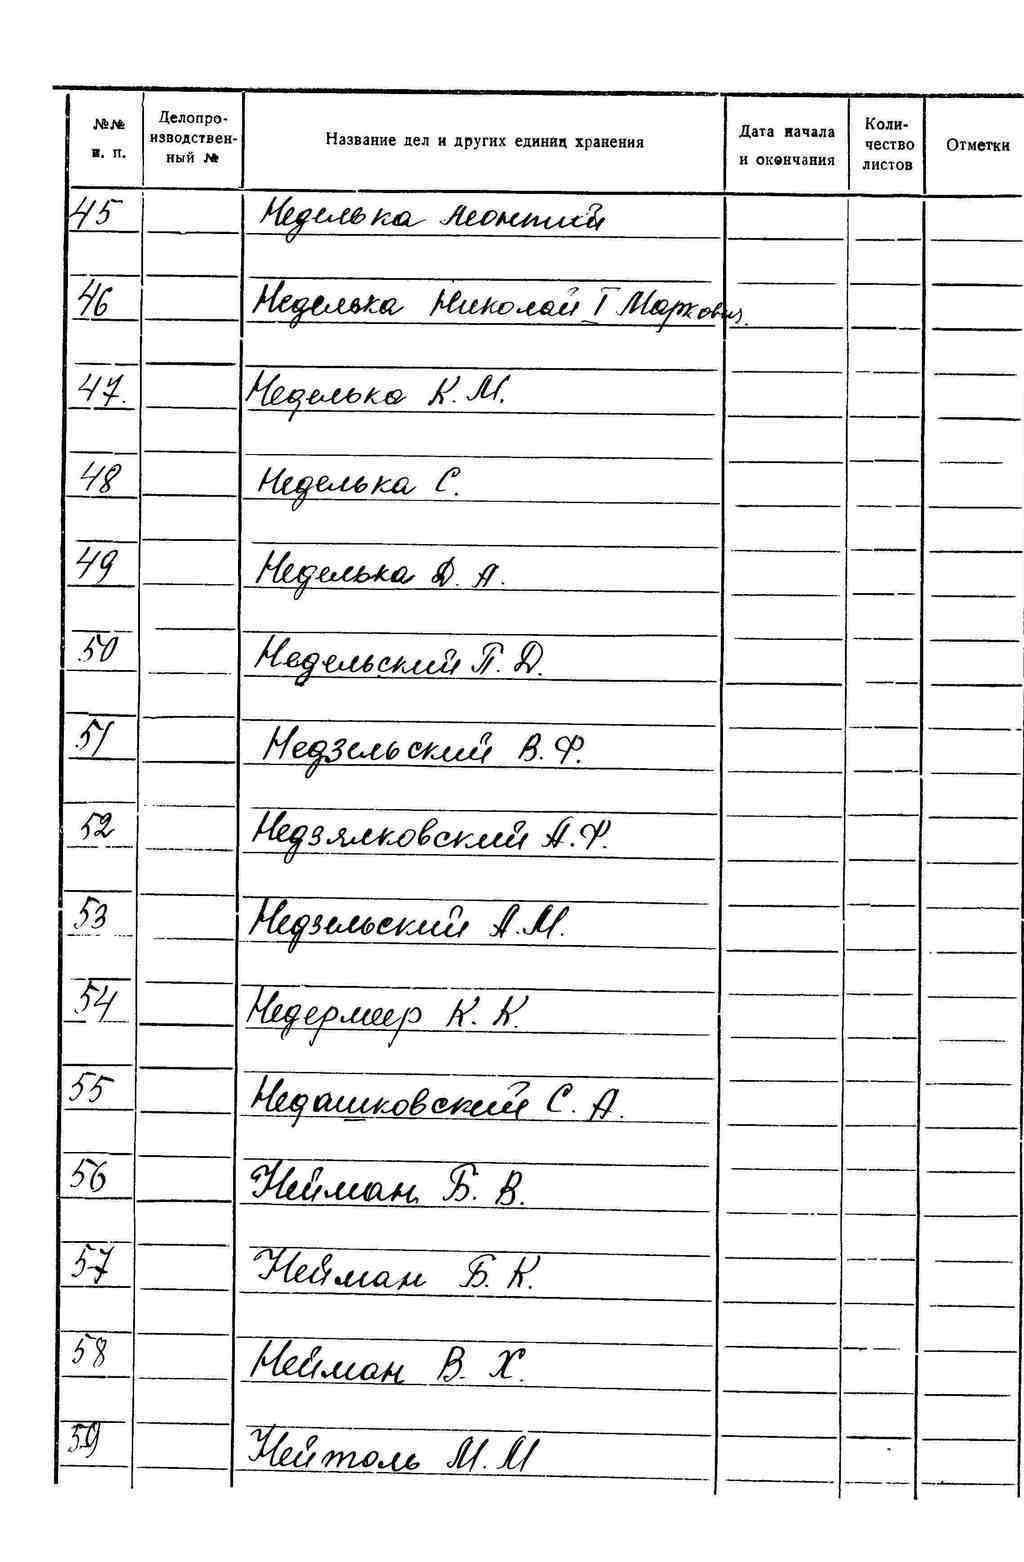 №№ и. п. Делопроизводственный № Название дел и других единиц хранения Дата начала и окончания Количество листов Отметки
45 Неделька Леонтий
46 Неделька Николай I Маркович
47. Неделька К. М.
48 Неделька С.
49 Неделька Д. А.
50 Недельский П. Д.
51 Недзельский В. Ф.
52 Недзялковский А. Ф.
53 Недзельский А. М.
54 Недермеер К. К.
55 Недашковский С. А.
56 Нейман Б. В.
57 Нейман Б. К.
58 Нейман В. Х.
59 Нейтоль М. М